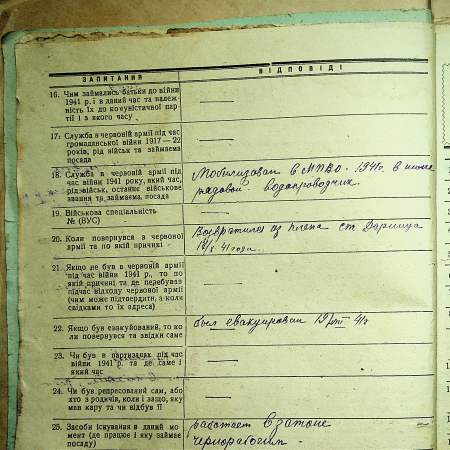 ЗАПИТАННЯ
ВІДПОВІДІ
16. Чим займались батьки до війни
1941 р. і в даний час та належ-
ність їх до комуністичної пар-
тії і з якого часу
17. Служба в червоній армії під час
громадянської війни 1917—22
років, рід військ та займаєма
посада
18. Служба в червоній армії під
час війни 1941 року, який час,
рід військ, останнє військове
звання та займаєма посада
Мобилизован в МПВО. 1941г. в июне
рядовой водопроводчик.
19. Військова спеціальність
№ (ВУС)
20. Коли повернувся з червоної
армії та по якій причині
Возвратился из плена ст Дарница
41 года.
21. Якщо не був в червоній армії
під час війни 1941 р., то по
якій причині та де перебував
підчас відходу червоної армії
(чим може підтвердити, а коли
свідками то їх адреса)
22. Якщо був евакуйований, то ко
ли повернувся та звідки саме
был евакуирован 19 41г
23. Чи був в партизанах під час
війни 1941 р. та де саме і
який час
24. Чи був репресований сам, або
хто з родичів, коли і защо, яку
мав кару та чи відбув її
25. Засоби існування в даний мо
мент (де працює і яку займає
посаду)
работает в затоне
чернорабочим.